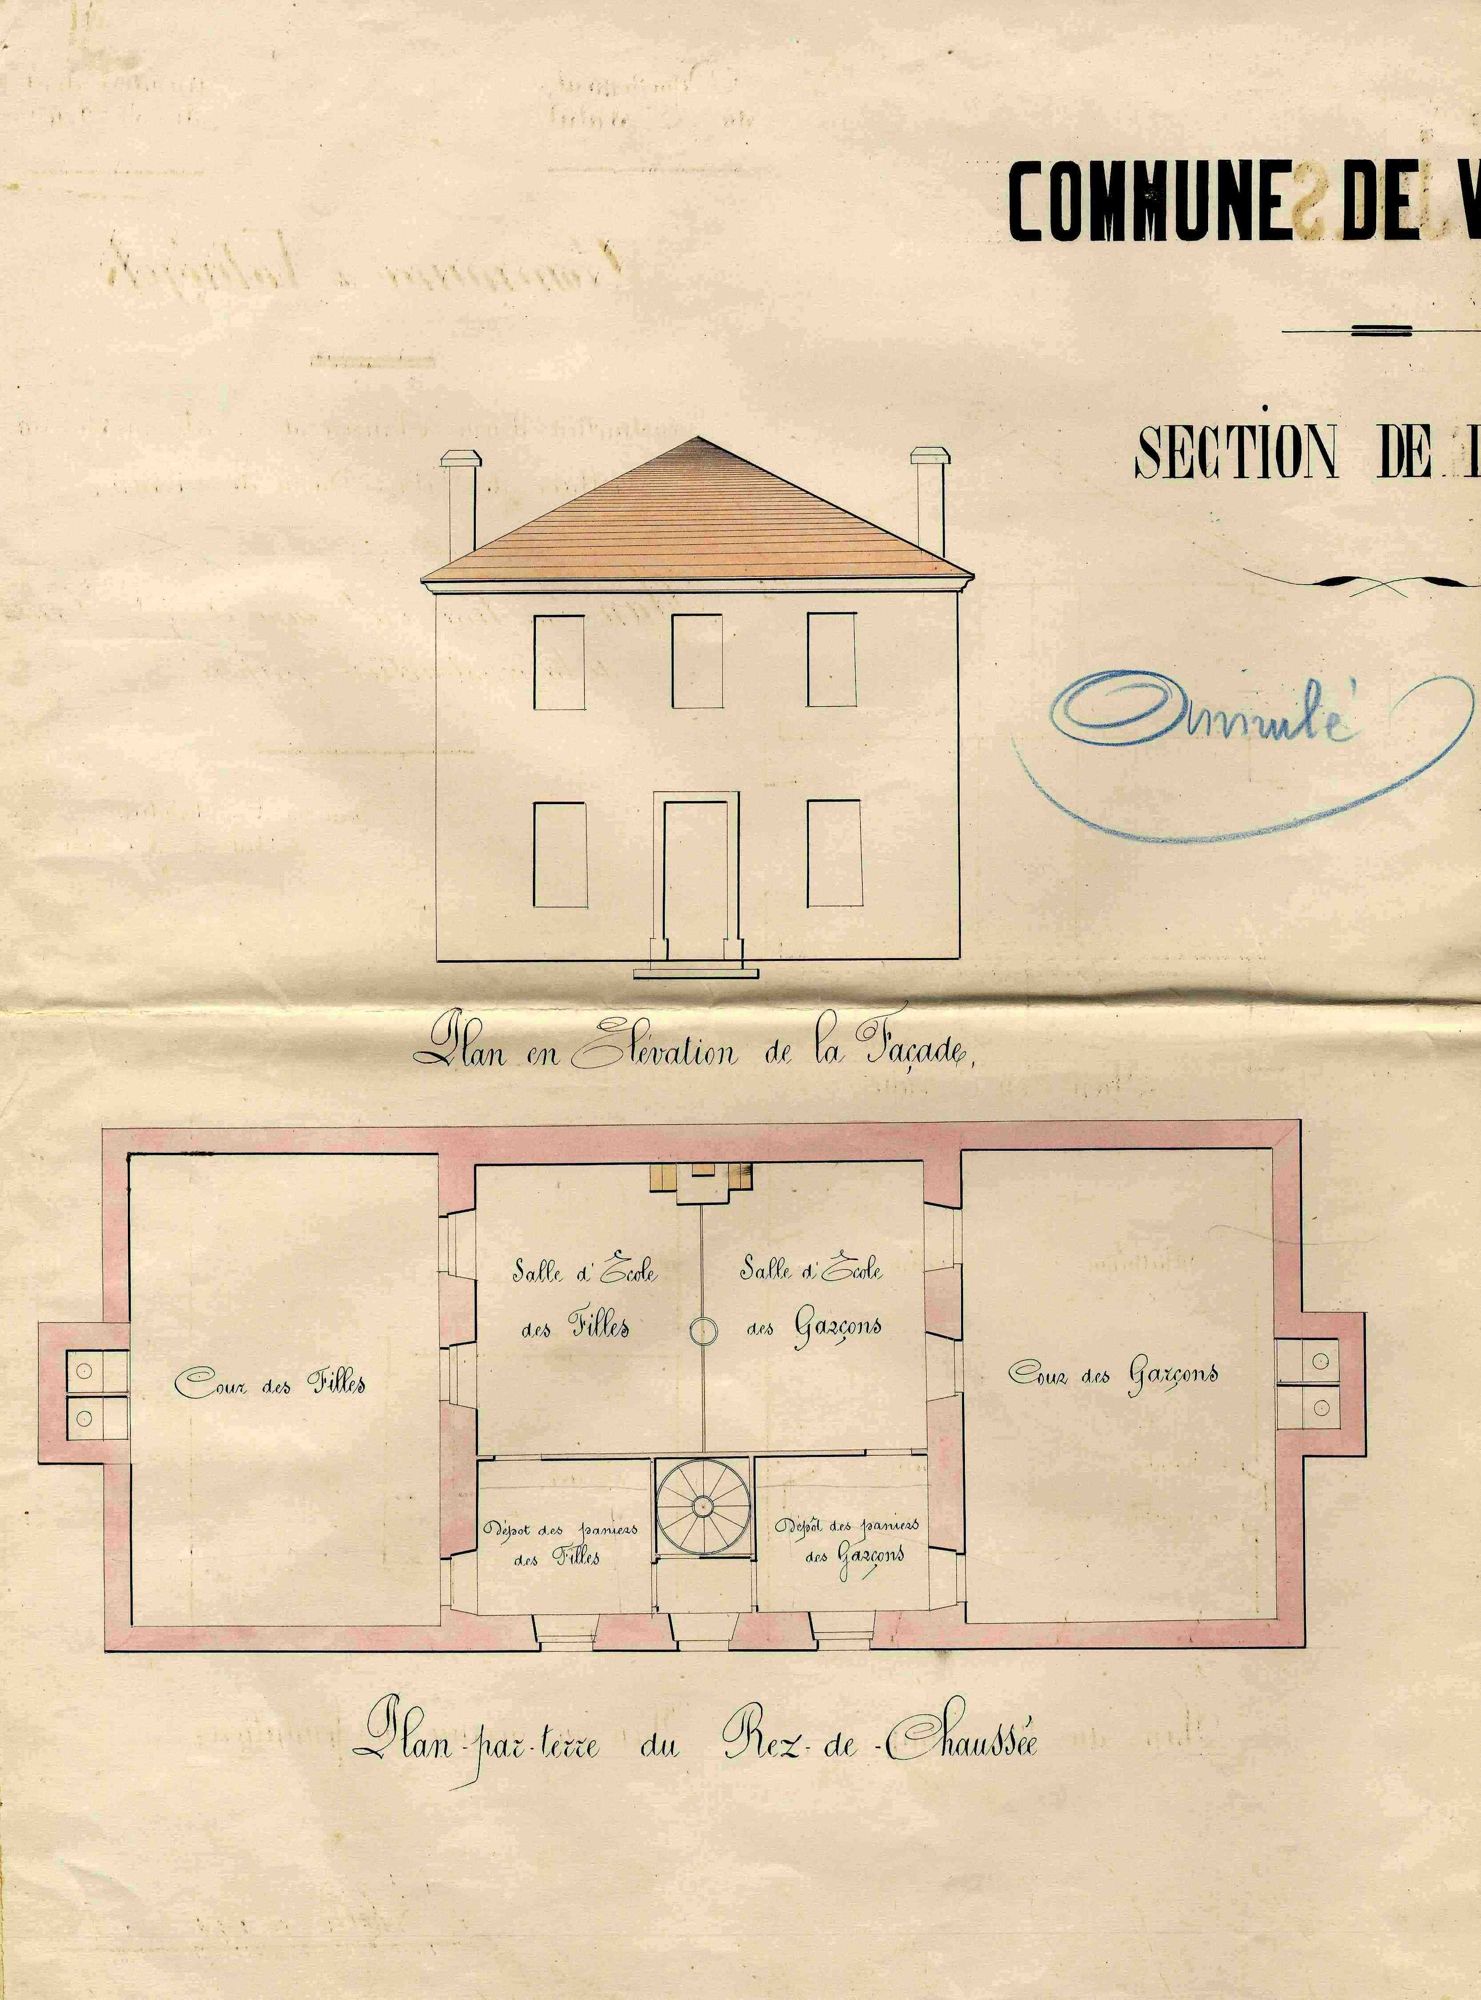 COMMUNE DE V
SECTION DE
Annulé
Plan en Élévation de la Façade,
Salle d'École
des Filles
Salle d'École
des Garçons
Cour des Filles
Cour des Garçons
Dépôt des paniers
des Filles
Dépôt des paniers
des Garçons
Plan-par-terre du Rez-de-Chaussée